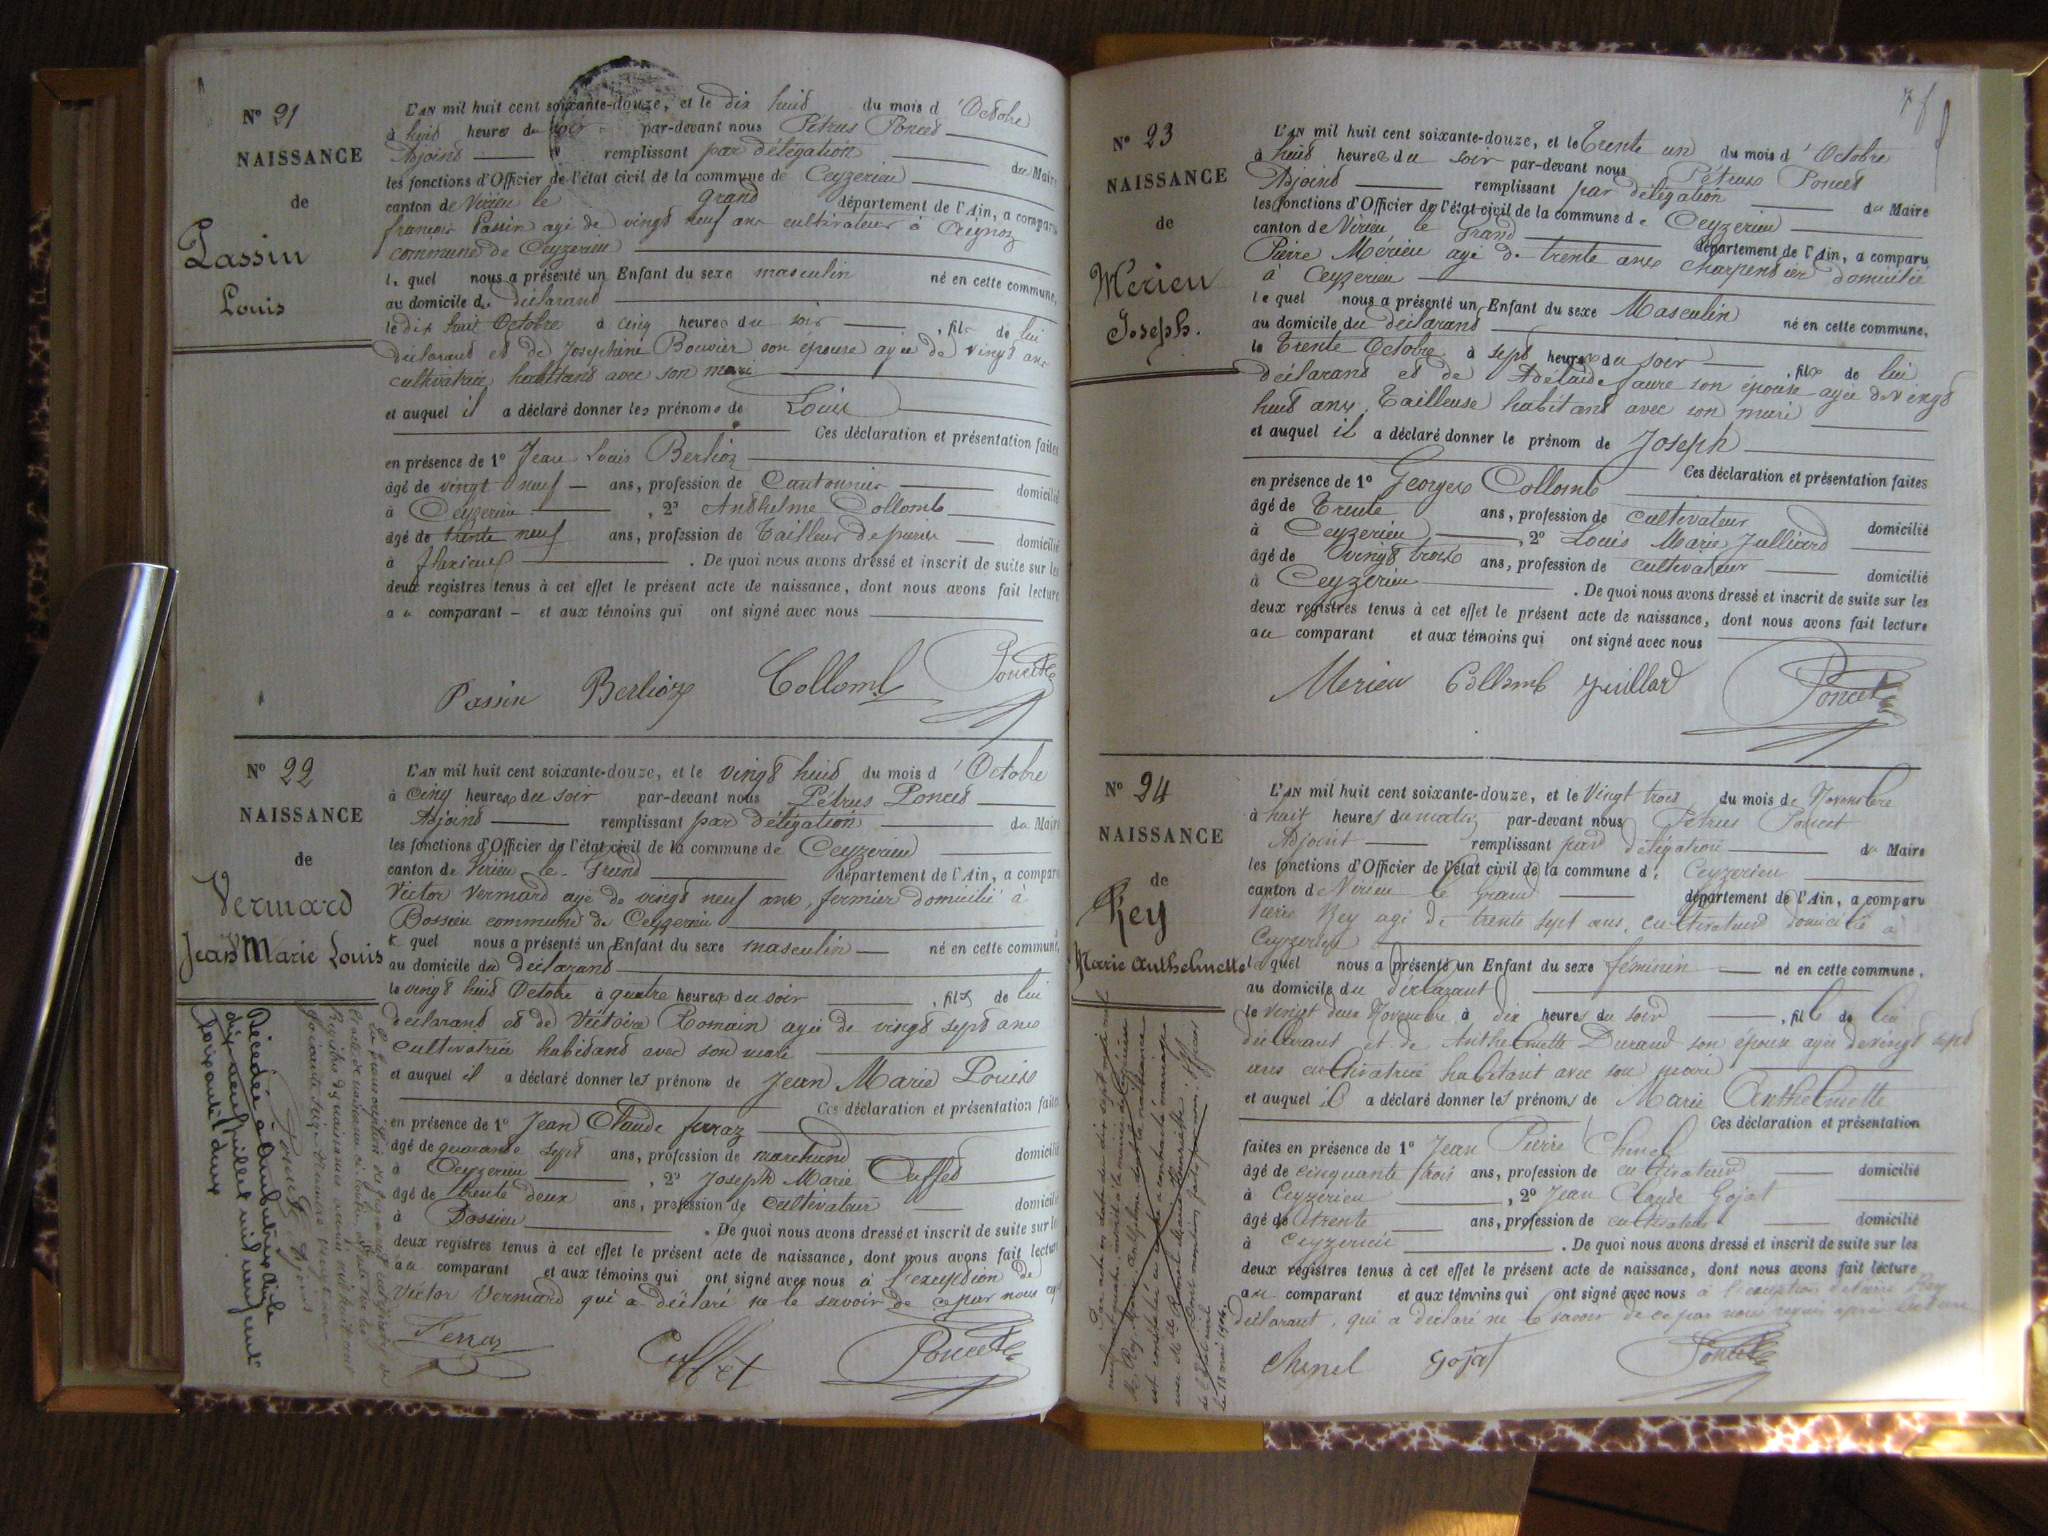 N° 21
NAISSANCE
de
Passin
Louis
L'AN mil huit cent soixante-douze, et le dix huit du mois d'Octobre
à huit heures du soir par-devant nous Pétrus Poncet
Adjoint remplissant par délégation du Maire
les fonctions d'Officier de l'état civil de la commune de Ceyzerieu
canton de Virieu le grand département de l'Ain, a comparu
françois Passin agé de vingt neuf ans cultivateur à Avignoz
commune de Ceyzerieu
le quel nous a présenté un Enfant du sexe masculin né en cette commune,
au domicile du déclarant
le dix huit Octobre à cinq heures du soir, fils de lui
déclarant et de Josephine Bouvier son épouse agée de vingt ans
cultivatrice habitant avec son mari
et auquel il a déclaré donner les prénoms de Louis
Ces déclaration et présentation faites
en présence de 1° Jean Louis Berlioz
âgé de vingt neuf ans, profession de Cantonnier domicilié
à Ceyzerieu, 2° Anthelme Collomb
âgé de trente neuf ans, profession de Tailleur de pierre domicilié
à flaxieux. De quoi nous avons dressé et inscrit de suite sur les
deux registres tenus à cet effet le présent acte de naissance, dont nous avons fait lecture
au comparant et aux témoins qui ont signé avec nous
Passin Berlioz Collomb Poncet
N° 22
NAISSANCE
de
Vermard
Jean Marie Louis
L'AN mil huit cent soixante-douze, et le vingt huit du mois d'Octobre
à cinq heures du soir par-devant nous Pétrus Poncet
Adjoint remplissant par délégation du Maire
les fonctions d'Officier de l'état civil de la commune de Ceyzerieu
canton de Virieu le Grand département de l'Ain, a comparu
Victor Vermard agé de vingt neuf ans, fermier domicilié à
Bossieu commune de Ceyzerieu
le quel nous a présenté un Enfant du sexe masculin né en cette commune,
au domicile du déclarant
le vingt huit Octobre à quatre heures du soir, fils de lui
déclarant et de Victoire Romain agée de vingt sept ans
cultivatrice habitant avec son mari
et auquel il a déclaré donner les prénoms de Jean Marie Louis
Ces déclaration et présentation faites
en présence de 1° Jean Claude ferraz
âgé de quarante sept ans, profession de marchand domicilié
à Ceyzerieu, 2° Joseph Marie Cuffet
âgé de trente deux ans, profession de cultivateur domicilié
à Bossieu. De quoi nous avons dressé et inscrit de suite sur les
deux registres tenus à cet effet le présent acte de naissance, dont nous avons fait lecture
au comparant et aux témoins qui ont signé avec nous à l'exception de
Victor Vermard qui a déclaré ne le savoir de ce par nous
Ferraz Cuffet Poncet
Décédée à Ambutrix
dix neuf juillet mil neuf cent
soixante deux
Poncet Adjoint
N° 23
NAISSANCE
de
Merieu
Joseph.
L'AN mil huit cent soixante-douze, et le Trente un du mois d'Octobre
à huit heures du soir par-devant nous Pétrus Poncet
Adjoint remplissant par délégation du Maire
les fonctions d'Officier de l'état civil de la commune de Ceyzerieu
canton de Virieu le Grand département de l'Ain, a comparu
Pierre Mérieu agé de trente ans charpentier domicilié
à Ceyzerieu
le quel nous a présenté un Enfant du sexe Masculin né en cette commune,
au domicile du déclarant
le Trente Octobre à sept heures du soir, fils de lui
déclarant et de Adélaïde faure son épouse agée de vingt
huit ans, Tailleuse habitant avec son mari
et auquel il a déclaré donner le prénom de Joseph
Ces déclaration et présentation faites
en présence de 1° Georges Collomb
âgé de Trente ans, profession de cultivateur domicilié
à Ceyzerieu, 2° Louis Marie Julliard
âgé de vingt trois ans, profession de cultivateur domicilié
à Ceyzerieu. De quoi nous avons dressé et inscrit de suite sur les
deux registres tenus à cet effet le présent acte de naissance, dont nous avons fait lecture
au comparant et aux témoins qui ont signé avec nous
Merieu Collomb Juillard Poncet
N° 24
NAISSANCE
de
Rey
Marie Anthelmette
L'AN mil huit cent soixante-douze, et le Vingt trois du mois de Novembre
à huit heures du matin par-devant nous Pétrus Poncet
Adjoint remplissant par délégation du Maire
les fonctions d'Officier de l'état civil de la commune de Ceyzerieu
canton de Virieu le Grand département de l'Ain, a comparu
Pierre Rey agé de trente sept ans, cultivateur domicilié à
Ceyzerieu
le quel nous a présenté un Enfant du sexe féminin né en cette commune,
au domicile du déclarant
le vingt deux Novembre à dix heures du soir, fille de lui
déclarant et de Anthelmette Durand son épouse agée de vingt sept
ans cultivatrice habitant avec son mari
et auquel il a déclaré donner les prénoms de Marie Anthelmette
Ces déclaration et présentation
faites en présence de 1° Jean Pierre Chenel
âgé de cinquante trois ans, profession de cultivateur domicilié
à Ceyzerieu, 2° Jean Claude Gojat
âgé de trente ans, profession de cultivateur domicilié
à Ceyzerieu. De quoi nous avons dressé et inscrit de suite sur les
deux registres tenus à cet effet le présent acte de naissance, dont nous avons fait lecture
au comparant et aux témoins qui ont signé avec nous à l'exception de Pierre Rey
déclarant, qui a déclaré ne le savoir de ce par nous requis après lecture
Chenel Gojat Poncet